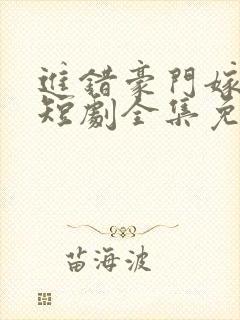 進錯豪門嫁
短劇全集免
苗海波